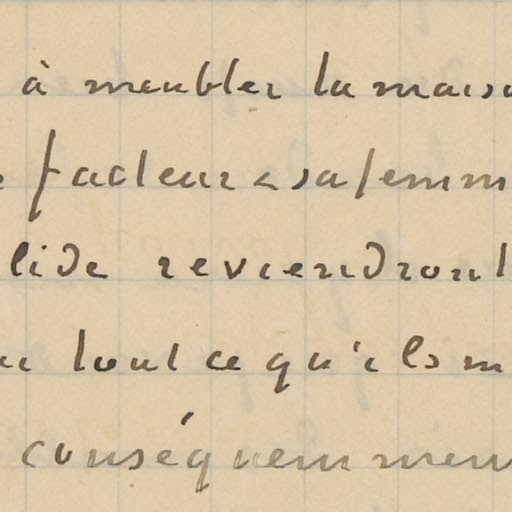 à meubler la maiso
facteur & sa femm
lide reviendront
tout ce qu'ils m
conséquemmen